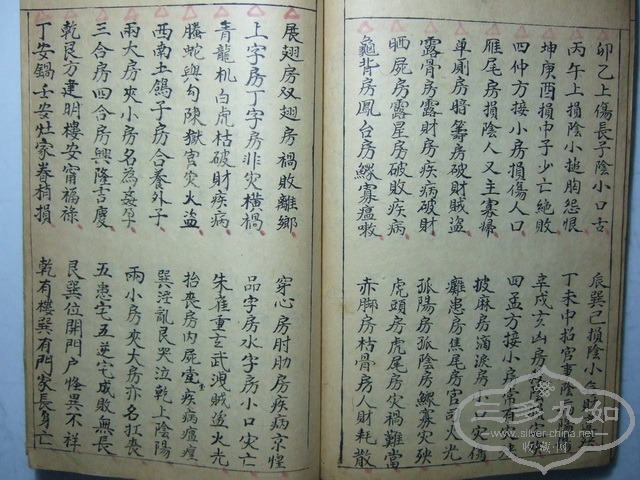 卯乙上傷長子陰小口舌 辰巽巳損陰小
丙午上損陰小搥胸怨恨 丁未申招官事陰
坤庚酉損巾子少亡絶敗 辛戌亥山房
四仲方接小房損傷人口 四孟方接小房常有
雁尾房損陰人又主寡婦 披麻房滴淚房
单厠房暗箭房破財賊盗 癱患房焦尾房官司火光
露骨房露財房疾病破財 孤陽房孤陰房鰥寡灾殃
晒屍房露星房破敗疾病 虎頭房虎尾房灾禍難當
龜背房鳳台房鰥寡瘟咳 赤脚房枯骨房人財耗散
展翅房双翅房禍敗離鄉 穿心房肘肋房疾病京惶
上字房丁字房非灾横禍 品字房水字房小口灾亡
青龍机白虎枯破財疾病 朱雀重玄武洩賊盗火光
螣蛇與勾陳獄官灾火盗 抬喪房内屍堂疾病瘟
西南土鴿子房合養外子 巽淫乱艮哭泣乾上陰陽
兩大房夾小房名為姦孕 兩小房夾大房亦名扛喪
三合房四合房興隆吉慶 五患宅五逆宅成敗無長
乾艮方建明樓安甯福祿 艮巽位開門户怪異不祥
丁安鍋壬安灶家眷稍損 乾有樓巽有門家長身亡
三多九如
www.silver-china.net